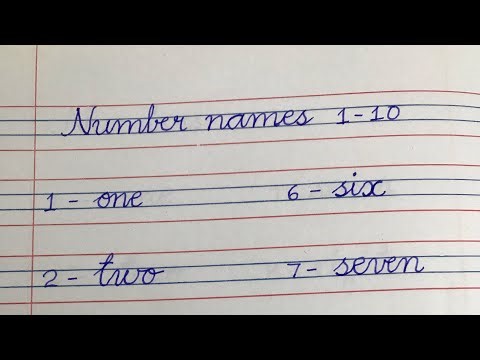 Number names 1-10
1 - one 6 - six
2 - two 7 - seven